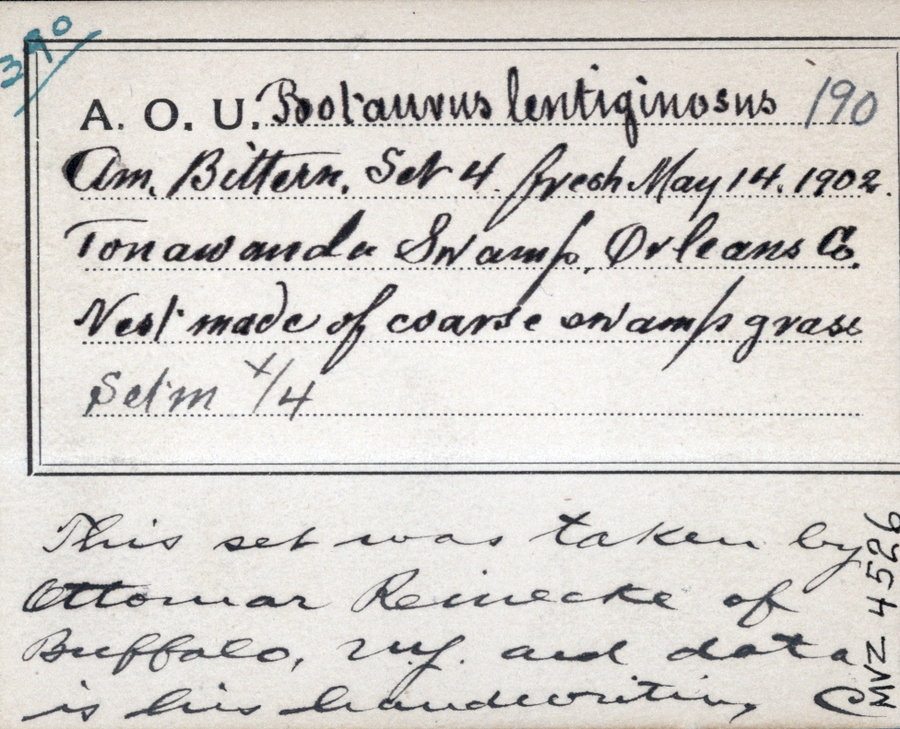 390
A. O. U. Botaurus lentiginosus 190
Am. Bittern. Set 4. fresh May 14. 1902.
Tonawanda Swamp, Orleans Co.
Nest made of coarse swamp grass
Set m x/4
This set was taken by
Ottomar Reinecke of
Buffalo, N.Y. and data
is his handwriting
MVZ 4526